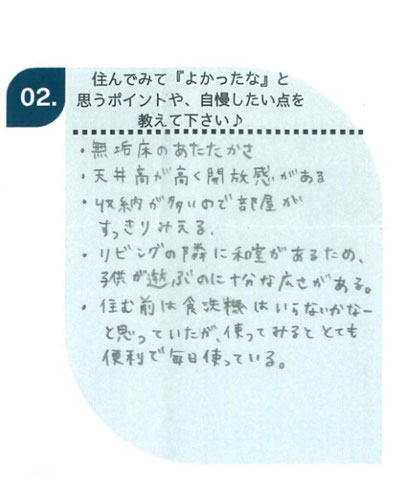 02.
住んでみて『よかったな』と
思うポイントや、自慢したい点を
教えて下さい♪
・無垢床のあたたかさ
・天井高が高く開放感がある
・収納が多いので部屋が
すっきりみえる.
・リビングの隣に和室があるため、
子供が遊ぶのに十分な広さがある。
・住む前は食洗機はいらないかなー
と思っていたが、使ってみると とても
便利で毎日使っている。